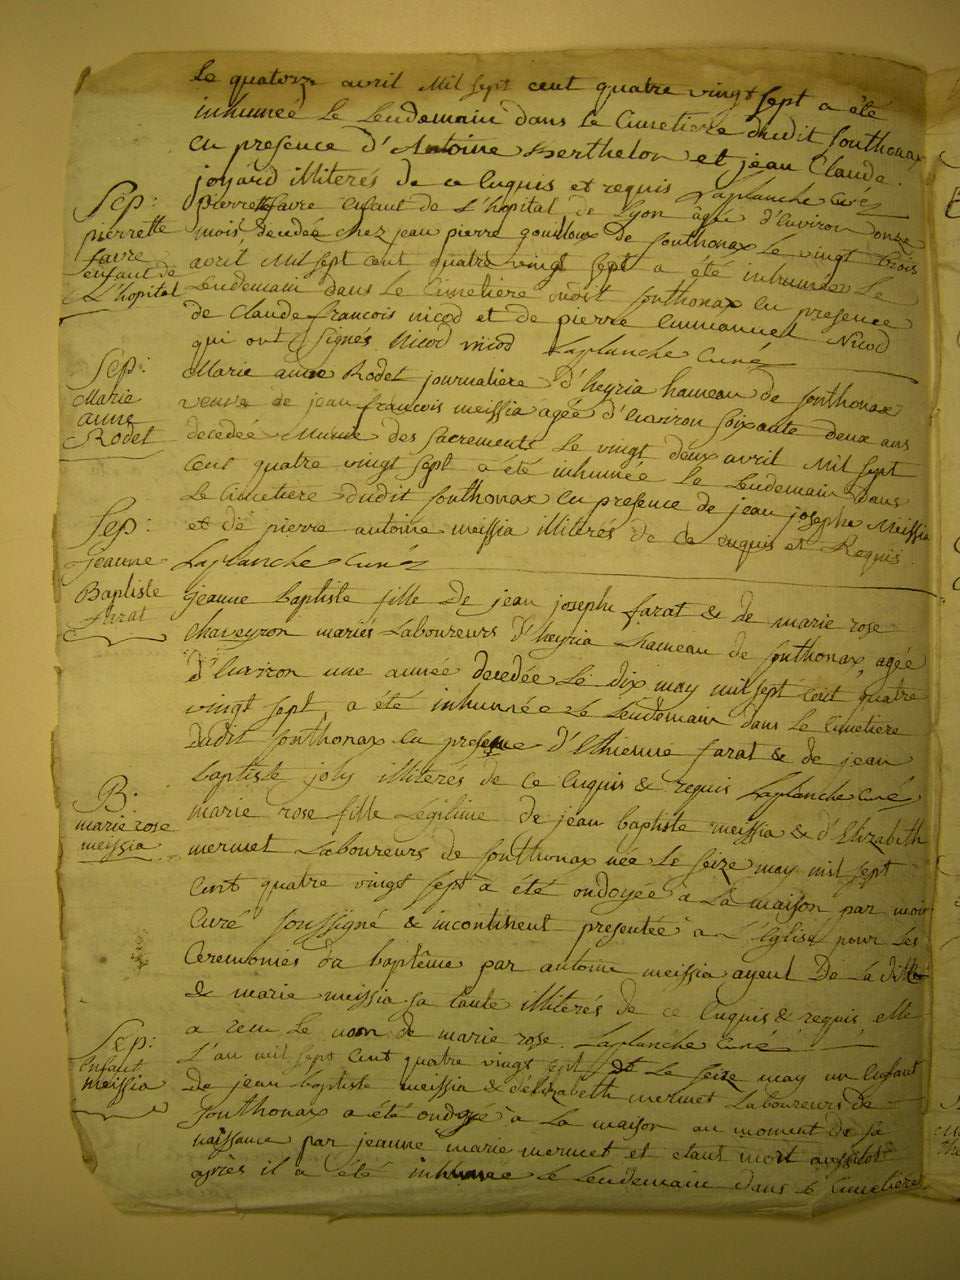 le quatorze avril Mil sept cent quatre vingt sept a été
inhumée Le Lendemain dans le Cimetiere dudit fonthonax
en presence d'Antoine Berthelon et jean Claude
joyard illiterés de ce Enquis et requis Laplanche curé
Sep:
pierrette
favre
enfant de
L'hopital
pierrette favre enfant de L'hopital de Lyon agée d'Environ donze
mois decedée chez jean pierre gouilloux de fonthonax Le vingt trois
avril Mil sept cent quatre vingt sept a été inhumée Le
Lendemain dans Le Cimetiere fonthonax en presence
de Claude françois nicod et de pierre Emmanuel Nicod
qui ont signés Nicod nicod Laplanche Curé
Sep:
Marie
anne
Rodet
Marie anne Rodet journaliere d'heyria hameau de fonthonax
veuve de jean françois meissia agée d'Environ soixante deux ans
decedée Munie des Sacrements Le vingt deux avril Mil sept
cent quatre vingt sept a été inhumée Le Lendemain dans
Le Cimetiere dudit fonthonax en presence de jean josephe Meissia
et de pierre antoine meissia illiterés de ce enquis et Requis.
Laplanche Curé
Sep:
jeanne
Baptiste
farat
jeanne baptiste fille De jean josephe farat & de marie rose
Chaveyron mariés Laboureurs d'heyria hameau de fonthonax, agée
d'Environ une année decedée Le dix may mil sept cent quatre
vingt sept a été inhumée Le Lendemain dans Le Cimetiere
dudit fonthonax en presence d'Ethienne farat & de jean
baptiste joly illiteres de ce Enquis & requis Laplanche curé
B:
marie rose
meissia
marie rose fille Legitime de jean baptiste meissia & d'Elizabeth
mermet Laboureurs de fonthonax née Le seize may mil sept
cent quatre vingt sept a été ondoyée a La maison par moi
Curé soussigné & incontinent presentée a L'Eglise pour Les
Ceremonies da baptême par antoine meissia ayeul De La ditte
& marie meissia sa tante illiterés de ce Enquis & requis, elle
a recu Le nom de marie rose. Laplanche curé
Sep:
Enfant
meissia
L'an mil sept cent quatre vingt sept & Le seize may un Enfant
De jean baptiste meissia & d'élizabeth mermet Laboureurs de
fonthonax a été ondoyé a La maison au moment de sa
naissance par jeanne marie mermet et etant mort aussitot
après il a été inhumé Le Lendemain dans Le Cimetiere